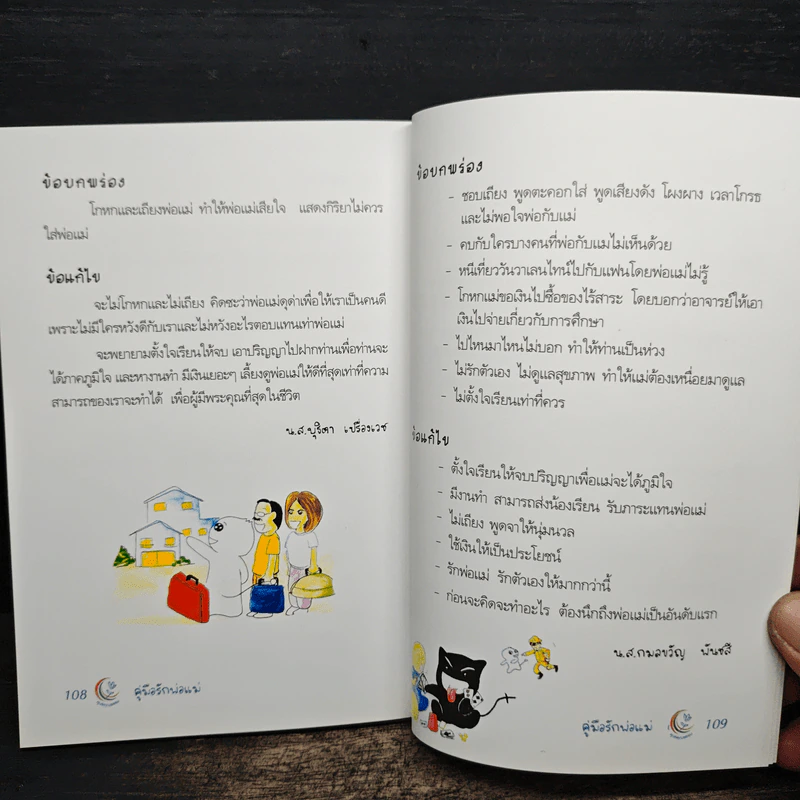 ข้อบกพร่อง
โกหกและเถียงพ่อแม่ ทำให้พ่อแม่เสียใจ แสดงกิริยาไม่ควร
ใส่พ่อแม่
ข้อแก้ไข
จะไม่โกหกและไม่เถียง คิดซะว่าพ่อแม่ดุด่าเพื่อให้เราเป็นคนดี
เพราะไม่มีใครหวังดีกับเราและไม่หวังอะไรตอบแทนเท่าพ่อแม่
จะพยายามตั้งใจเรียนให้จบ เอาปริญญาไปฝากท่านเพื่อท่านจะ
ได้ภาคภูมิใจ และหางานทำ มีเงินเยอะๆ เลี้ยงดูพ่อแม่ให้ดีที่สุดเท่าที่ความ
สามารถของเราจะทำได้ เพื่อผู้มีพระคุณที่สุดในชีวิต
น.ส.พุธิตา เปรื่องเวช
108 คู่มือรักพ่อแม่
ข้อบกพร่อง
- ชอบเถียง พูดตะคอกใส่ พูดเสียงดัง โผงผาง เวลาโกรธ
และไม่พอใจพ่อกับแม่
- คบกับใครบางคนที่พ่อกับแม่ไม่เห็นด้วย
- หนีเที่ยววันวาเลนไทน์ไปกับแฟนโดยพ่อแม่ไม่รู้
- โกหกแม่ขอเงินไปซื้อของไร้สาระ โดยบอกว่าอาจารย์ให้เอา
เงินไปจ่ายเกี่ยวกับการศึกษา
- ไปไหนมาไหนไม่บอก ทำให้ท่านเป็นห่วง
- ไม่รักตัวเอง ไม่ดูแลสุขภาพ ทำให้แม่ต้องเหนื่อยมาดูแล
- ไม่ตั้งใจเรียนเท่าที่ควร
ข้อแก้ไข
- ตั้งใจเรียนให้จบปริญญาเพื่อแม่จะได้ภูมิใจ
- มีงานทำ สามารถส่งน้องเรียน รับภาระแทนพ่อแม่
- ไม่เถียง พูดจาให้นุ่มนวล
- ใช้เงินให้เป็นประโยชน์
- รักพ่อแม่ รักตัวเองให้มากกว่านี้
- ก่อนจะคิดจะทำอะไร ต้องนึกถึงพ่อแม่เป็นอันดับแรก
น.ส.กมลขวัญ พันชสี
คู่มือรักพ่อแม่ 109